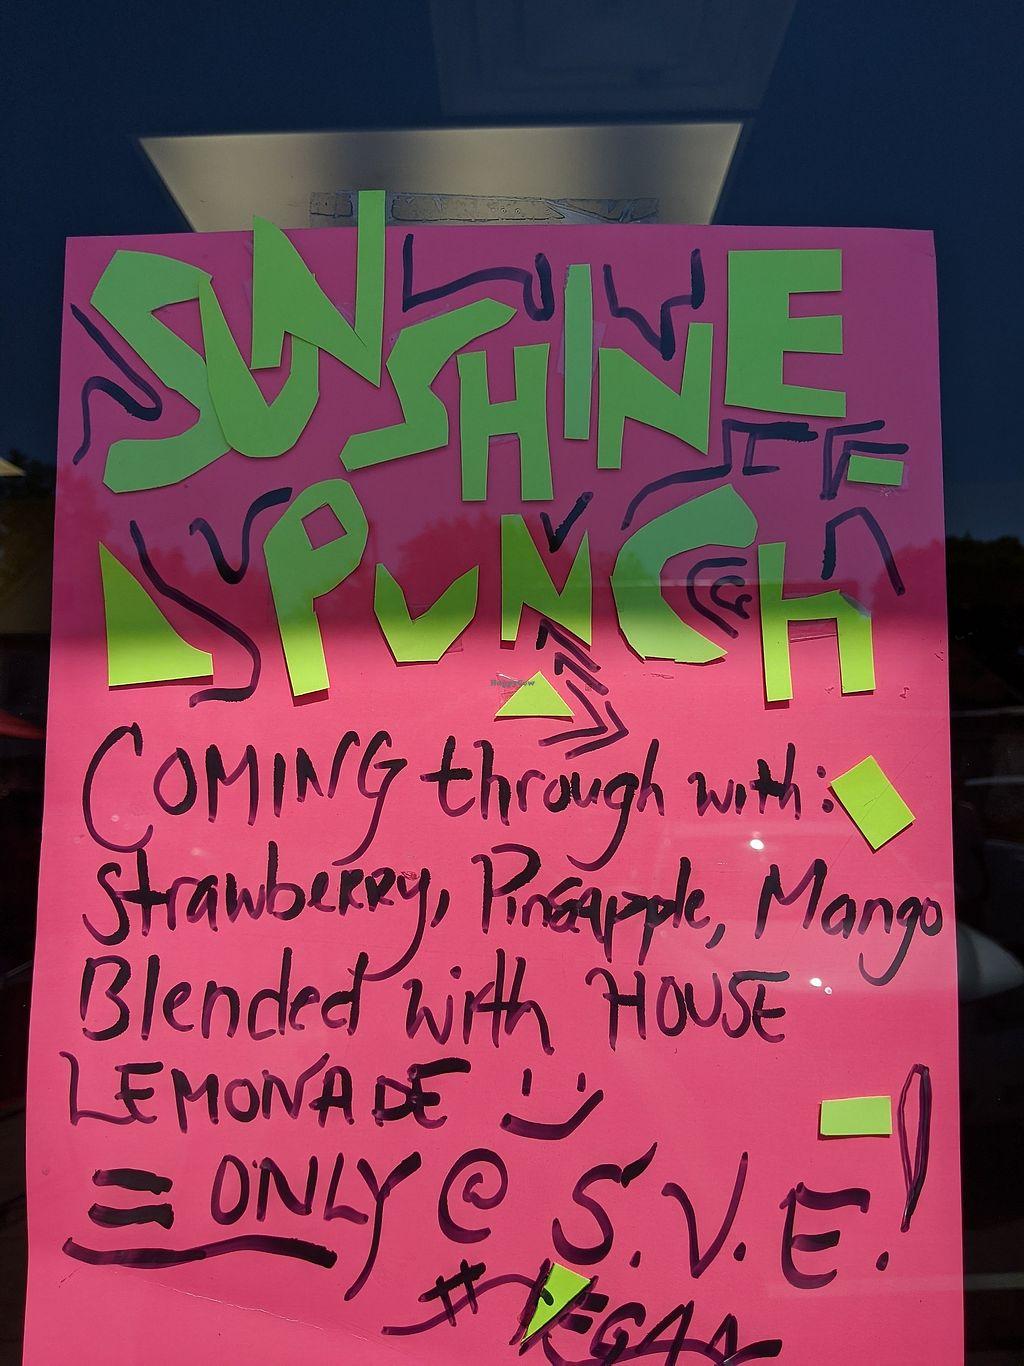 SUNSHINE
PUNCH
HappyCow
COMING through with:
Strawberry, Pineapple, Mango
Blended with HOUSE
LEMONADE :)
= ONLY @ S.V.E.!
#VEGAN